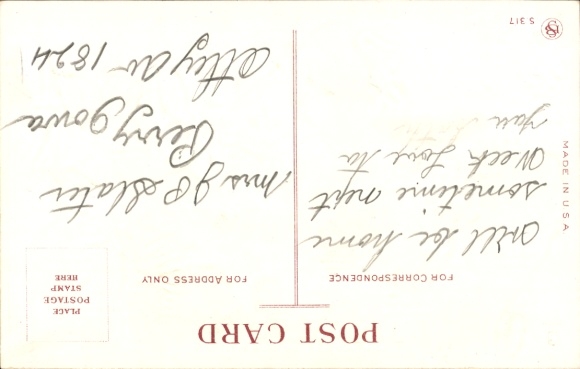 POST CARD
FOR CORRESPONDENCE
FOR ADDRESS ONLY
PLACE
POSTAGE
STAMP
HERE
Will be home
sometime next
Week Love to
you
Mrs J P Slater
Perry Iowa
1824
MADE IN U S A
S 317